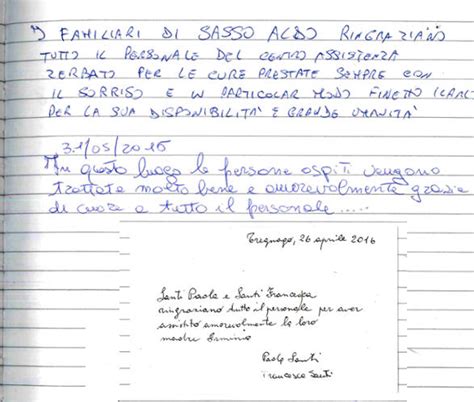 I FAMILIARI DI SASSO ALDO RINGRAZIANO
TUTTO IL PERSONALE DEL CENTRO ASSISTENZA
ZERBATO PER LE CURE PRESTATE SEMPRE CON
IL SORRISO E IN PARTICOLAR MODO FINETTO
PER LA SUA DISPONIBILITA' E GRANDE UMANITA'
31/05/2015
In questo luogo le persone ospiti vengono
trattate molto bene e amorevolmente grazie
di cuore a tutto il personale.....
Tregnago, 26 aprile 2016
Santi Paola e Santi Francesca
ringraziano tutto il personale per aver
assistito amorevolmente la loro
madre
Paola Santi
Francesca Santi